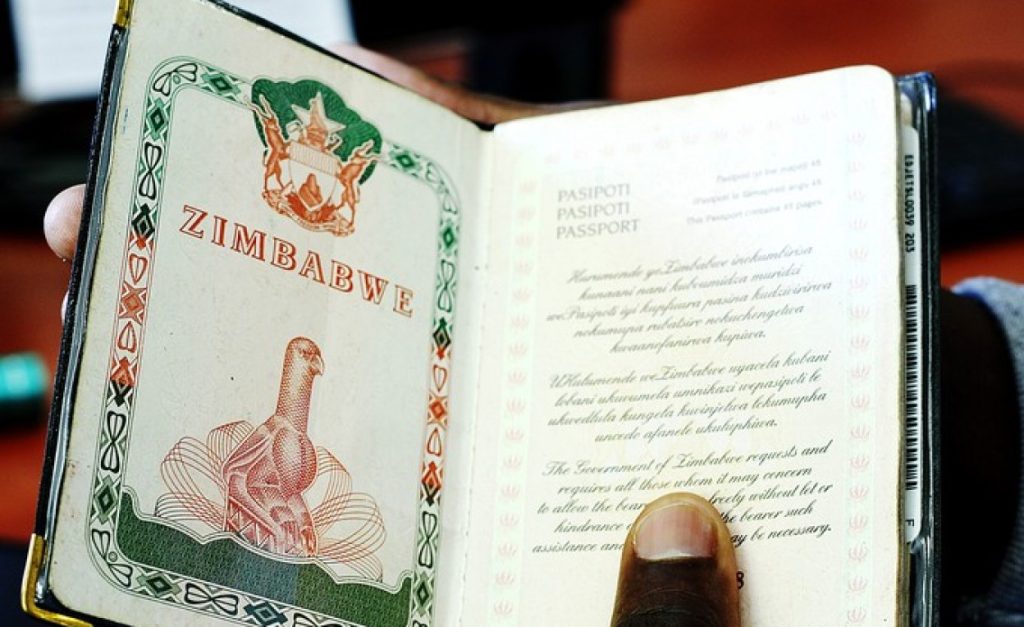 ZIMBABWE
PASIPOTI
PASIPOTI
PASSPORT
Pasipoti iyi ine mapeji 48
iPasipoti le ilamapheji angu 48
This Passport contains 48 pages
Hurumende yeZimbabwe inokumbirisa
kunaani nani kubvumidza muridzi
wePasipoti iyi kupfuura pasina kudzivirirwa
nokumupa rubatsiro nokuchengetwa
kwaanofanirwa kupiwa.
UHulumende weZimbabwe uyacela kubani
lobani ukuvumela umnikazi wepasipoti le
ukwedlula kungela kuvinjelwa lokumupha
uncedo afanele ukuluphiwa.
The Government of Zimbabwe requests and
requires all those whom it may concern
to allow the bearer freely without let or
hindrance the bearer such
assistance and may be necessary.